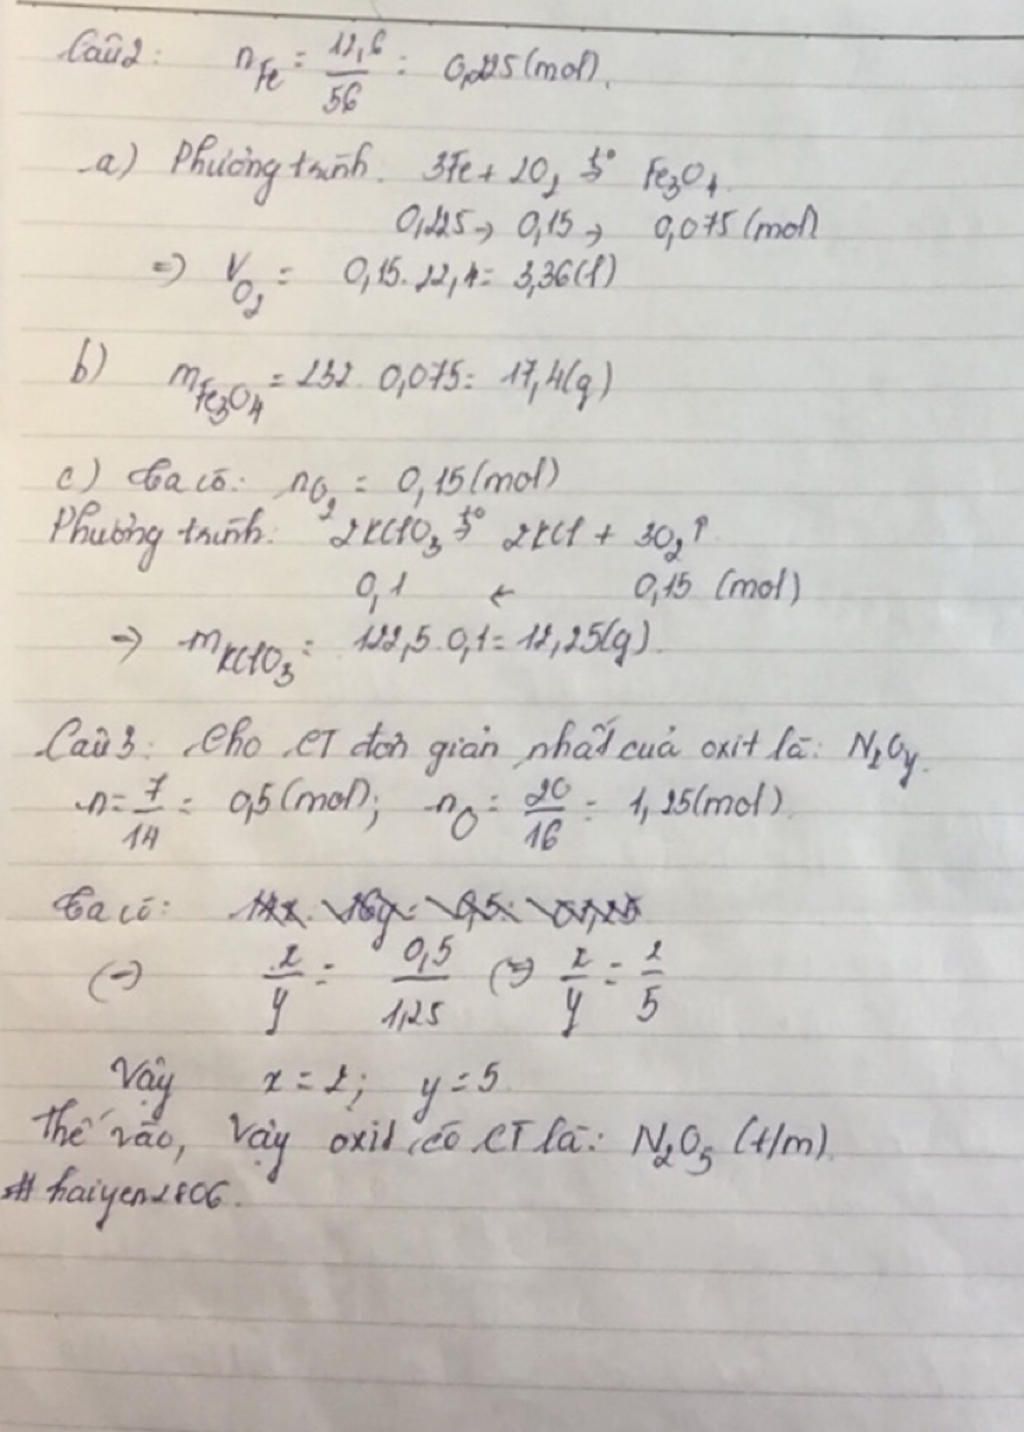 Câu 2: nFe = 12,6/56 = 0,225 (mol).
a) Phương trình: 3Fe + 2O2 t°→ Fe3O4
0,225 → 0,15 → 0,075 (mol)
=> VO2 = 0,15 . 22,4 = 3,36 (l)
b) mFe3O4 = 232 . 0,075 = 17,4 (g)
c) Ta có: nO2 = 0,15 (mol)
Phương trình: 2KClO3 t°→ 2KCl + 3O2↑
0,1 ← 0,15 (mol)
=> mKClO3 = 122,5 . 0,1 = 12,25 (g).
Câu 3: Cho CT đơn giản nhất của oxit là: NxOy.
n = 7/14 = 0,5 (mol); nO = 20/16 = 1,25 (mol).
Ta có:
(=) x/y = 0,5/1,25 (=) x/y = 2/5
Vậy x = 2; y = 5
Thế vào, vậy oxit có CT là: N2O5 (t/m).
# haiyen2806.